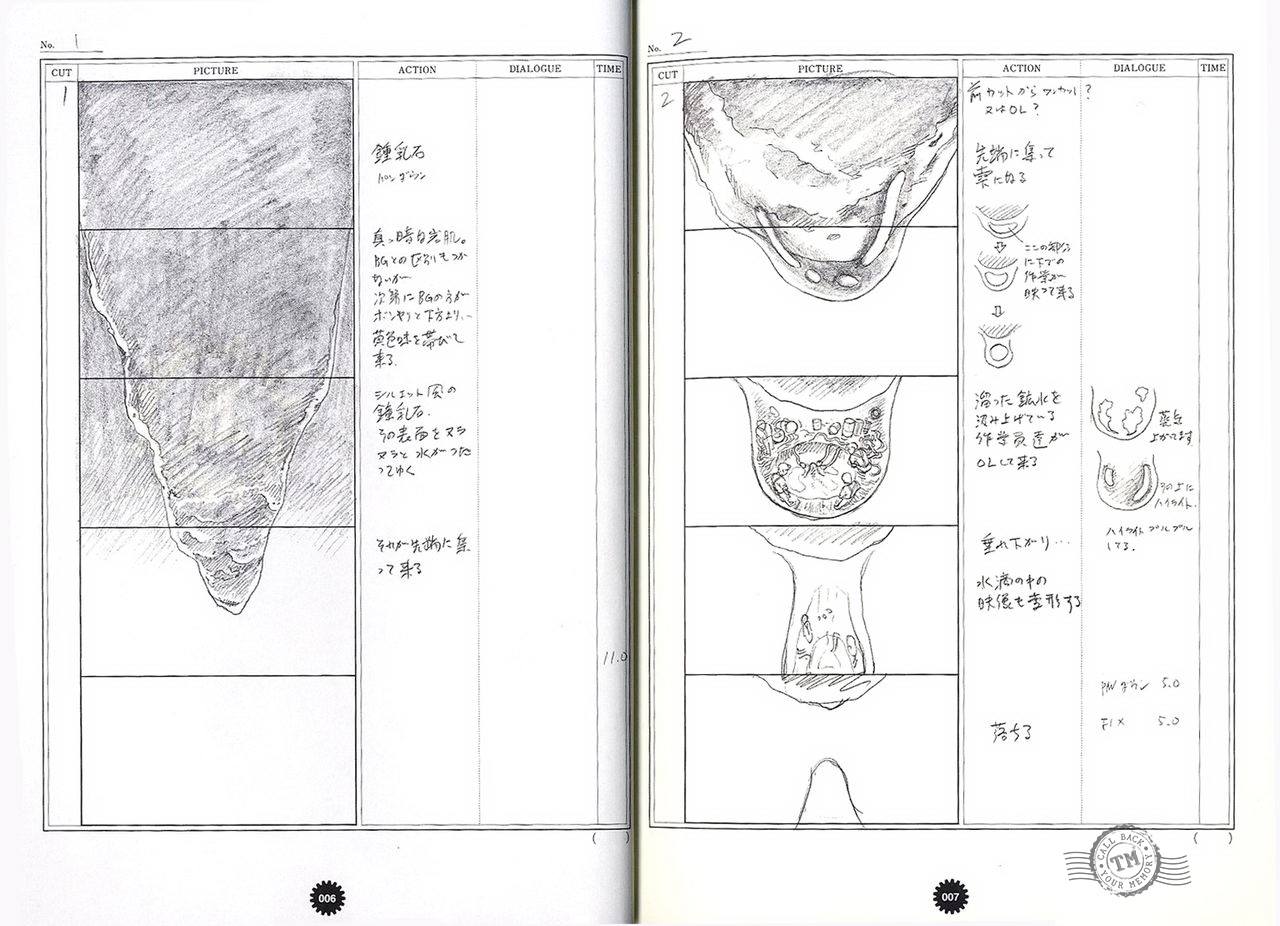 No. 1
CUT
PICTURE
ACTION
DIALOGUE
TIME
1
鍾乳石
パンダウン
真っ暗な岩肌。
BGとの区別もつか
ないが
次第にBGの方が
ボンヤリと下方より、
黄色味を帯びて
来る。
シルエット風の
鍾乳石。
その表面をヌラ
ヌラと水がつた
ってゆく
それが先端に集
って来る
11.0
( )
006
No. 2
CUT
PICTURE
ACTION
DIALOGUE
TIME
2
前カットからワンカット?
又はOL?
先端に集って
雫になる
ここの部分
に下での
作業が
映って来る
溜った鉱水を
汲み上げている
作業員達が
OLして来る
蒸気
上がってます
その上に
ハイライト.
ハイライトプルプル
してる.
垂れ下がり…
水滴の中の
映像も変形する
PANダウン 5.0
落ちる
FIX 5.0
( )
007
CALL BACK
TM
YOUR MEMORY